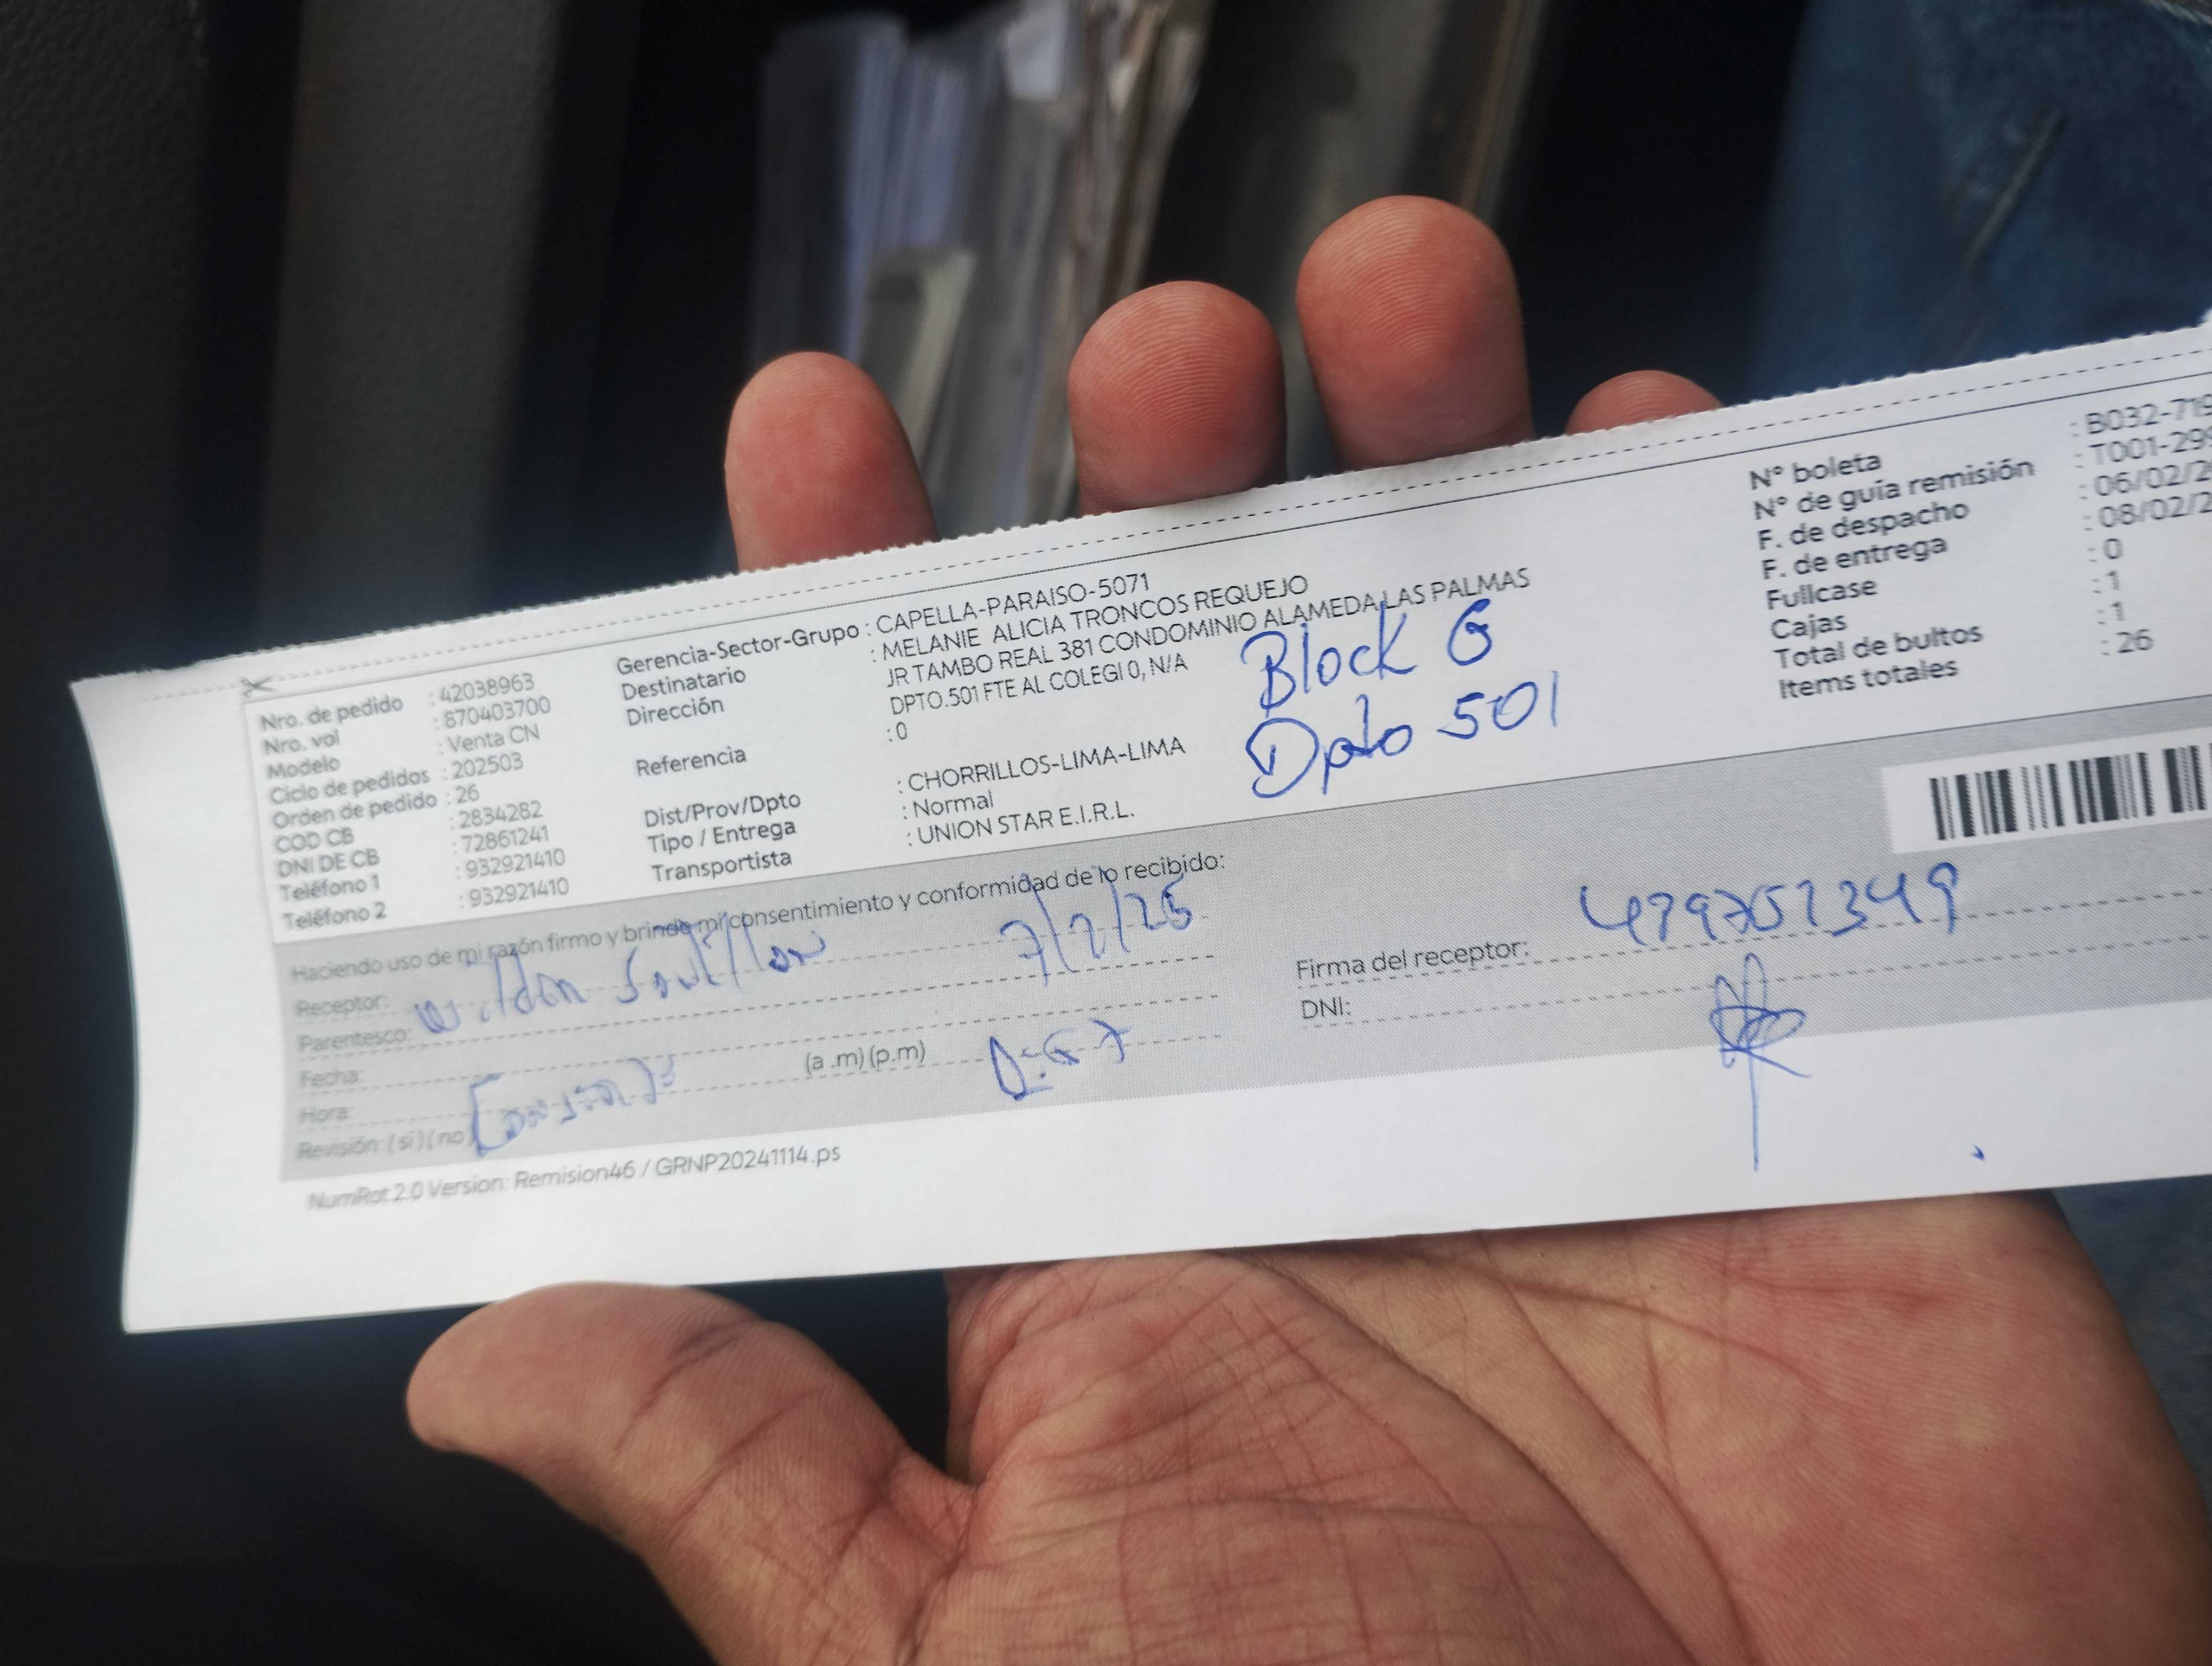 Nro. de pedido : 42038963
Nro. vol : 870403700
Modelo : Venta CN
Ciclo de pedidos : 202503
Orden de pedido : 26
COD CB : 2834282
DNI DE CB : 72861241
Teléfono 1 : 932921410
Teléfono 2 : 932921410
Gerencia-Sector-Grupo : CAPELLA-PARAISO-5071
Destinatario : MELANIE ALICIA TRONCOS REQUEJO
Dirección JR TAMBO REAL 381 CONDOMINIO ALAMEDA LAS PALMAS
DPTO.501 FTE AL COLEGI 0, N/A
Referencia : 0
Dist/Prov/Dpto : CHORRILLOS-LIMA-LIMA
Tipo / Entrega : Normal
Transportista : UNION STAR E.I.R.L.
Block G
Dpto 501
N° boleta : B032-719
N° de guía remisión : T001-299
F. de despacho : 06/02/2
F. de entrega : 08/02/2
Fullcase : 0
Cajas : 1
Total de bultos : 1
Items totales : 26
Haciendo uso de mi razón firmo y brindo mi consentimiento y conformidad de lo recibido:
Receptor:
Parentesco:
Fecha: 7/2/25
Hora: (a .m) (p.m)
Revisión: ( si ) ( no )
Firma del receptor:
DNI:
NumRot 2.0 Version: Remision46 / GRNP20241114.ps